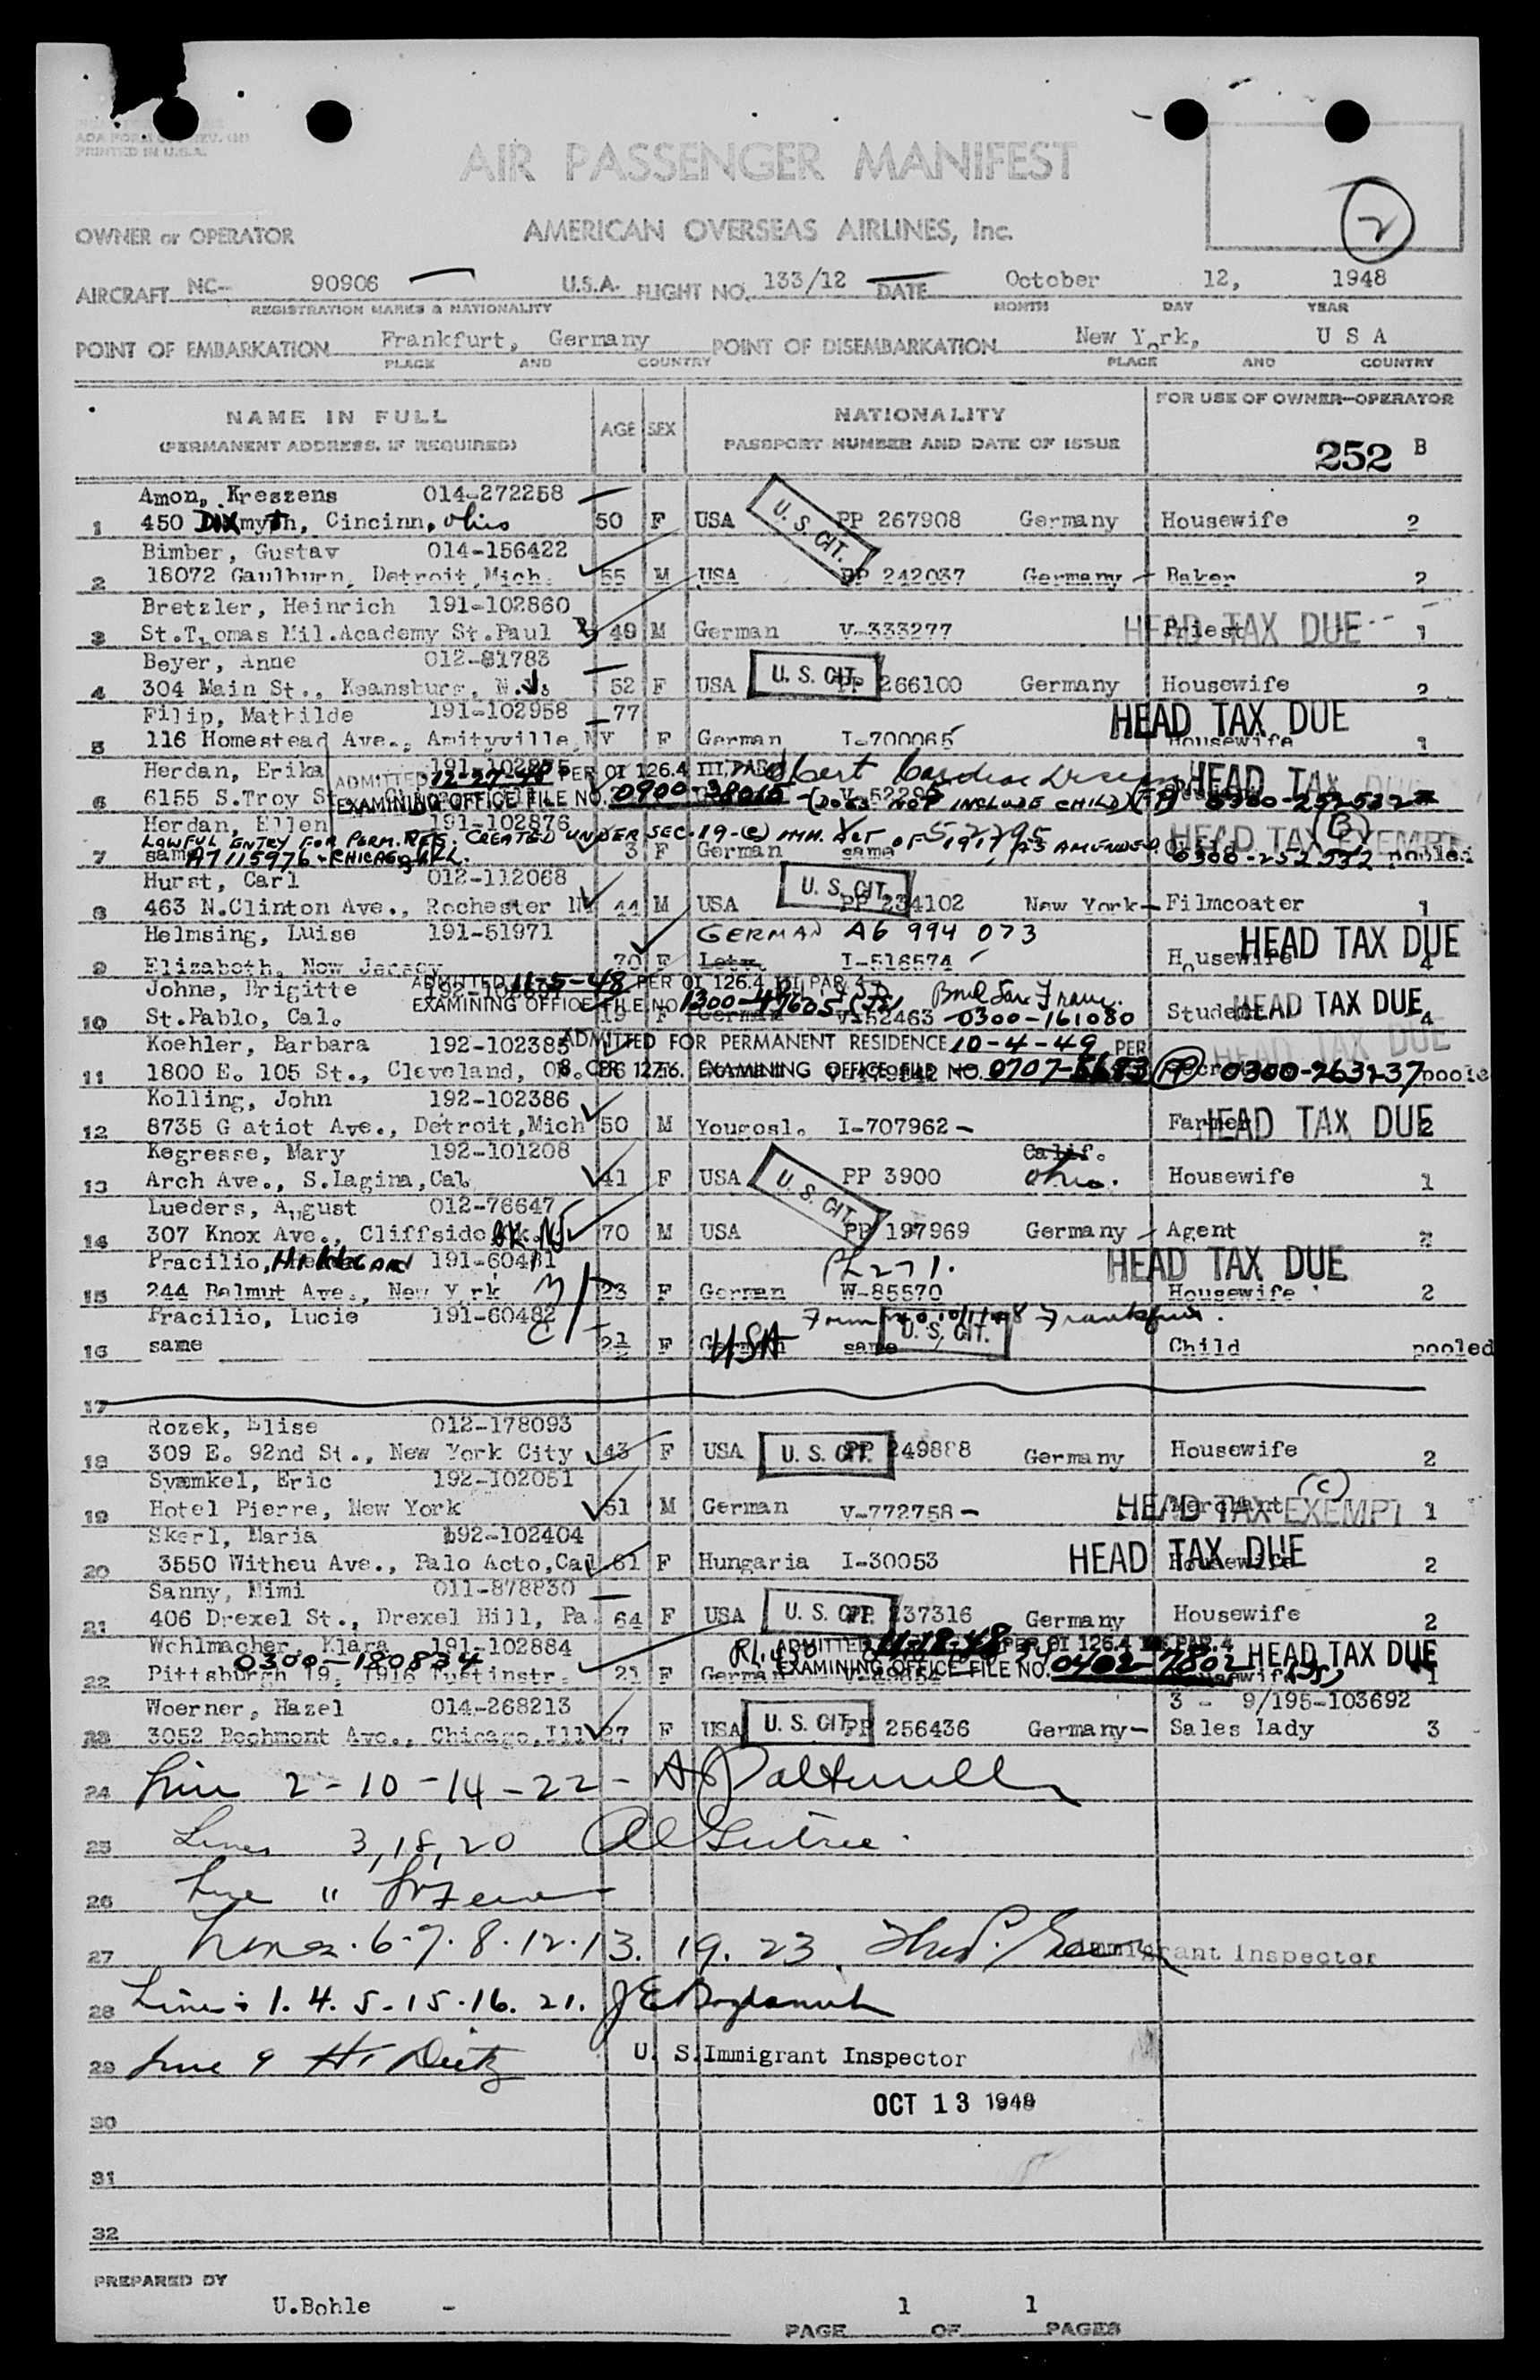 PRINTED IN U.S.A.
AIR PASSENGER MANIFEST
2
OWNER or OPERATOR AMERICAN OVERSEAS AIRLINES, Inc.
AIRCRAFT NC- 90906 U.S.A. FLIGHT NO. 133/12 DATE October 12, 1948
REGISTRATION MARKS & NATIONALITY MONTH DAY YEAR
POINT OF EMBARKATION Frankfurt, Germany POINT OF DISEMBARKATION New York, U S A
PLACE AND COUNTRY PLACE AND COUNTRY
NAME IN FULL AGE SEX NATIONALITY FOR USE OF OWNER-OPERATOR
(PERMANENT ADDRESS, IF REQUIRED) PASSPORT NUMBER AND DATE OF ISSUE
252 B
Amon, Kreszens 014-272258
1 450 DIXmyTh, Cincinn, Ohio 50 F USA U. S. CIT. PP 267908 Germany Housewife 2
Bimber, Gustav 014-156422
2 18072 Gaulburn, Detroit, Mich. 55 M USA PP 242037 Germany Baker 2
Bretzler, Heinrich 191-102860
3 St.Thomas Mil.Academy St.Paul 49 M German V-333277 Priest HEAD TAX DUE 1
Beyer, Anne 012-81783
4 304 Main St., Keansburg, N.J. 52 F USA U. S. CIT. PP 266100 Germany Housewife 2
Filip, Mathilde 191-102958 77
5 116 Homestead Ave., Amityville, NY F German I-700065 HEAD TAX DUE Housewife 1
Herdan, Erika ADMITTED 12-27-48 PER OI 126.4 III, PAR
6 6155 S.Troy EXAMINING OFFICE FILE NO. 0900-38015 V-52295 (DOES NOT INCLUDE CHILD) HEAD TAX DUE 0300-252532
Herdan, Ellen 191-102876
LAWFUL ENTRY FOR PERM. RES. CREATED UNDER SEC. 19-(c) IMM. ACT OF 1917, AS AMENDED
7 same A7115976 - CHICAGO, ILL. 3 F German same 52295 HEAD TAX EXEMPT (B) 0300-252532 pooled
Hurst, Carl 012-112068
8 463 N.Clinton Ave., Rochester 44 M USA U. S. CIT. PP 234102 New York Filmcoater 1
Helmsing, Luise 191-51971 GERMAN A6 994 073
9 Elizabeth, New Jersey 70 F I-516574 Housewife HEAD TAX DUE 4
Johne, Brigitte ADMITTED 11-5-48 PER OI 126.4 III PAR 4
EXAMINING OFFICE FILE NO 1300-47605
10 St.Pablo, Cal. 19 F German V-152463 0300-161080 Student HEAD TAX DUE 4
Koehler, Barbara 192-102385 ADMITTED FOR PERMANENT RESIDENCE 10-4-49 PER
11 1800 E. 105 St., Cleveland, 8 CFR 127.6. EXAMINING OFFICE FILE NO. 0707-5683 HEAD TAX DUE 0300-263237
Kolling, John 192-102386
12 8735 G atiot Ave., Detroit, Mich 50 M Yougosl. I-707962 Farmer HEAD TAX DUE 2
Kegresse, Mary 192-101208 Calif.
13 Arch Ave., S.Lagina, Cal. 41 F USA U. S. CIT. PP 3900 Ohio. Housewife 1
Lueders, August 012-76647
14 307 Knox Ave., Cliffside 70 M USA PP 197969 Germany Agent 2
Pracilio, 191-60481
15 244 Belmut Ave., New York 23 F German W-85570 HEAD TAX DUE Housewife 2
Pracilio, Lucie 191-60482
16 same 2½ F USA same U. S. CIT. Child pooled
17
Rozek, Elise 012-178093
18 309 E. 92nd St., New York City 43 F USA U. S. CIT. PP 249888 Germany Housewife 2
Svæmkel, Eric 192-102051
19 Hotel Pierre, New York 51 M German V-772758 Merchant HEAD TAX EXEMPT (C) 1
Skerl, Maria 192-102404
20 3550 Witheu Ave., Palo Acto, Cal 61 F Hungaria I-30053 HEAD TAX DUE Housewife 2
Sanny, Mimi 011-878830
21 406 Drexel St., Drexel Hill, Pa. 64 F USA U. S. CIT. PP 237316 Germany Housewife 2
Wohlmacher, Klara 191-102884 ADMITTED 11-18-48 PER OI 126.4 PAR. 4
0300-180834 EXAMINING OFFICE FILE NO. 0402-7802 HEAD TAX DUE
22 Pittsburgh 19, 1916 21 F German Housewife 1
Woerner, Hazel 014-268213 3 - 9/195-103692
23 3052 Bechmont Ave., Chicago, Ill 27 F USA U. S. CIT. PP 256436 Germany Sales Lady 3
24 Line 2-10-14-22-
25 Lines 3, 18, 20
26 Line 11
27 Lines 6-7.8.12.13. 19. 23. Immigrant Inspector
28 Line: 1. 4. 5-15.16. 21.
29 Line 9 U. S. Immigrant Inspector
30 OCT 13 1948
31
32
PREPARED BY
U.Bohle -
PAGE 1 OF 1 PAGES